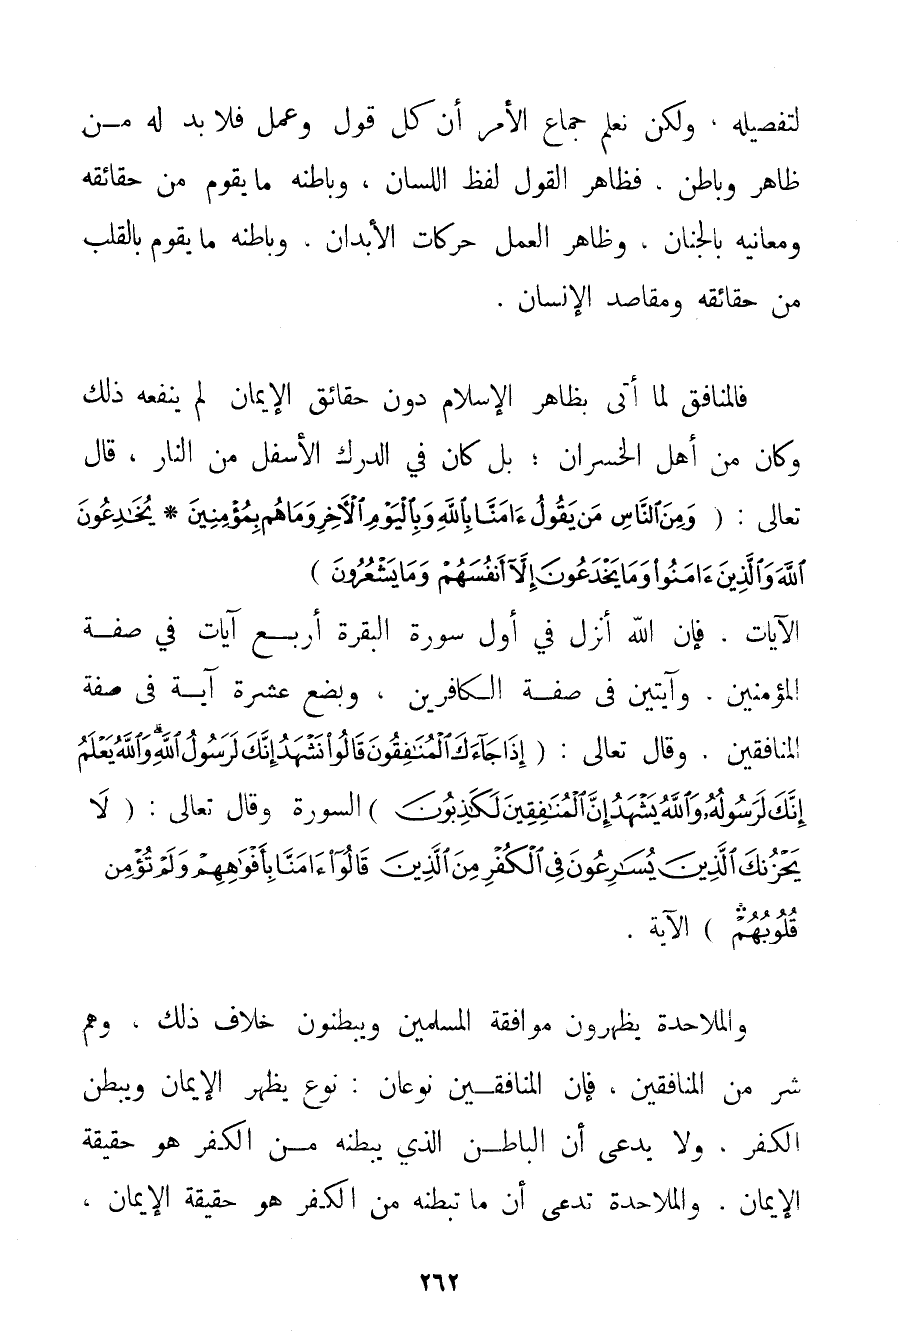 لتفصيله ، ولكن نعلم جماع الأمر أن كل قول وعمل فلا بد له من
ظاهر وباطن . فظاهر القول لفظ اللسان ، وباطنه ما يقوم من حقائقه
ومعانيه بالجنان ، وظاهر العمل حركات الأبدان . وباطنه ما يقوم بالقلب
من حقائقه ومقاصد الإنسان .
فالمنافق لما أتى بظاهر الإسلام دون حقائق الإيمان لم ينفعه ذلك
وكان من أهل الخسران ؛ بل كان في الدرك الأسفل من النار ، قال
تعالى : ( وَمِنَ ٱلنَّاسِ مَن يَقُولُ ءَامَنَّا بِٱللَّهِ وَبِٱلْيَوْمِ ٱلْأَخِرِ وَمَا هُم بِمُؤْمِنِينَ * يُخَٰدِعُونَ
ٱللَّهَ وَٱلَّذِينَ ءَامَنُوا۟ وَمَا يَخْدَعُونَ إِلَّآ أَنفُسَهُمْ وَمَا يَشْعُرُونَ )
الآيات . فإن الله أنزل في أول سورة البقرة أربع آيات في صفة
المؤمنين . وآيتين فى صفة الكافرين ، وبضع عشرة آية فى صفة
المنافقين . وقال تعالى : ( إِذَا جَآءَكَ ٱلْمُنَٰفِقُونَ قَالُوا۟ نَشْهَدُ إِنَّكَ لَرَسُولُ ٱللَّهِ ۗ وَٱللَّهُ يَعْلَمُ
إِنَّكَ لَرَسُولُهُۥ وَٱللَّهُ يَشْهَدُ إِنَّ ٱلْمُنَٰفِقِينَ لَكَٰذِبُونَ ) السورة وقال تعالى : ( لَا
يَحْزُنكَ ٱلَّذِينَ يُسَٰرِعُونَ فِى ٱلْكُفْرِ مِنَ ٱلَّذِينَ قَالُوٓا۟ ءَامَنَّا بِأَفْوَٰهِهِمْ وَلَمْ تُؤْمِن
قُلُوبُهُمْ ۛ ) الآية .
والملاحدة يظهرون موافقة المسلمين ويبطنون خلاف ذلك ، وهم
شر من المنافقين ، فإن المنافقين نوعان : نوع يظهر الإيمان ويبطن
الكفر . ولا يدعى أن الباطن الذي يبطنه من الكفر هو حقيقة
الإيمان . والملاحدة تدعى أن ما تبطنه من الكفر هو حقيقة الإيمان ،
٢٦٢